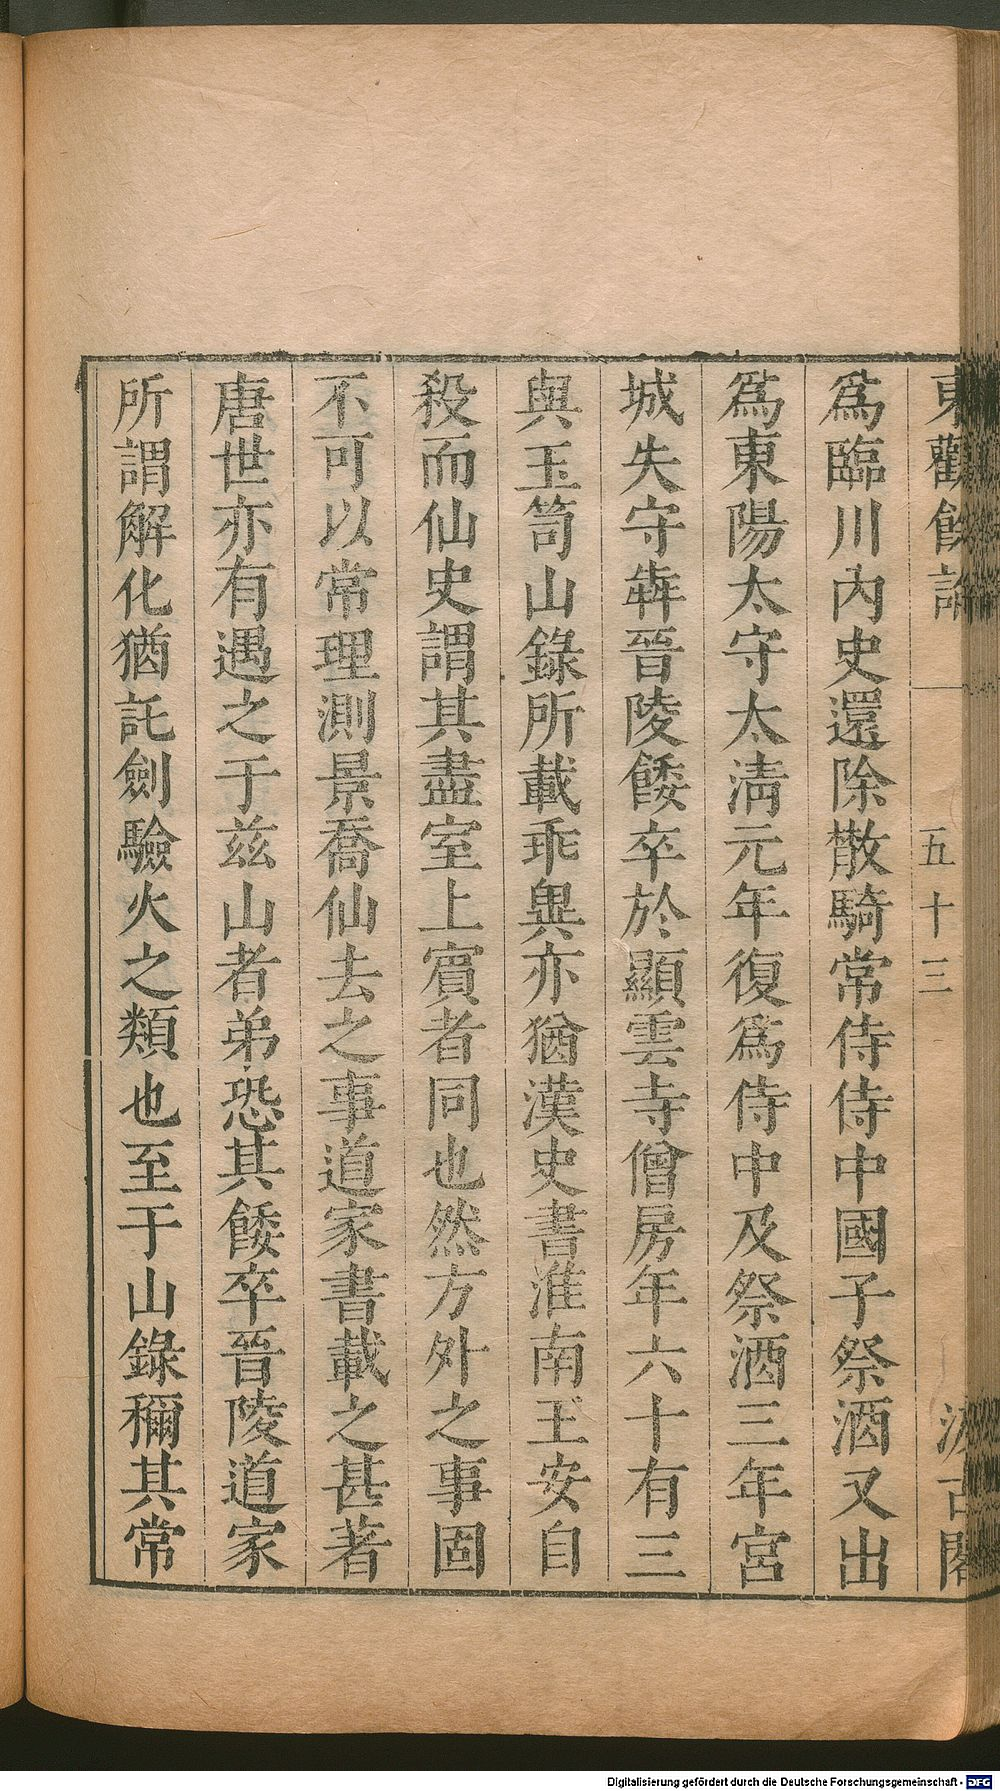 東觀餘論
五十三
汲古閣
爲臨川內史還除散騎常侍侍中國子祭酒又出
爲東陽太守太淸元年復爲侍中及祭酒三年宮
城失守犇晉陵餧卒於顯雲寺僧房年六十有三
與玉笥山錄所載乖異亦猶漢史書淮南王安自
殺而仙史謂其盡室上賓者同也然方外之事固
不可以常理測景喬仙去之事道家書載之甚著
唐世亦有遇之于兹山者弟恐其餧卒晉陵道家
所謂解化猶託劍驗火之類也至于山錄穪其常
Digitalisierung gefördert durch die Deutsche Forschungsgemeinschaft - DFG